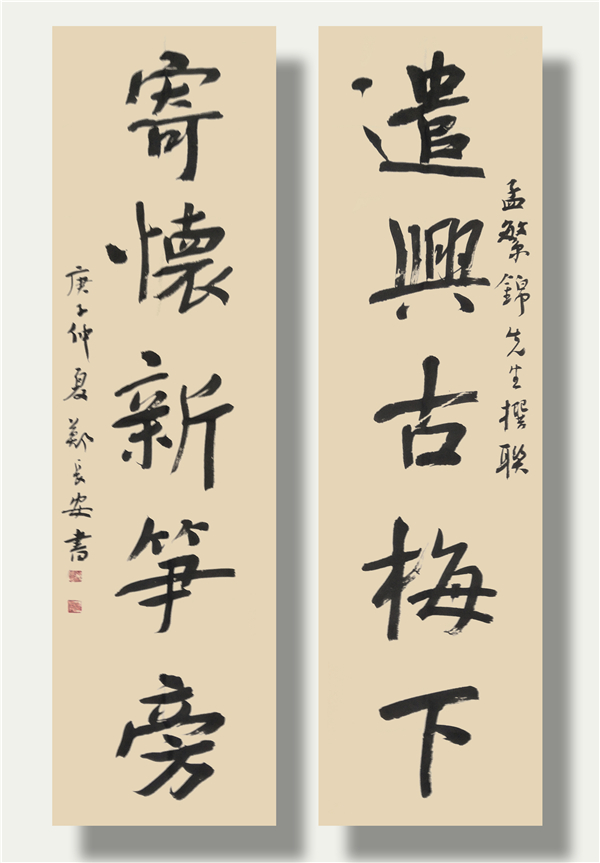 孟繁錦先生撰联
遣興古梅下
寄懷新笋旁
庚子仲夏鄭長安書